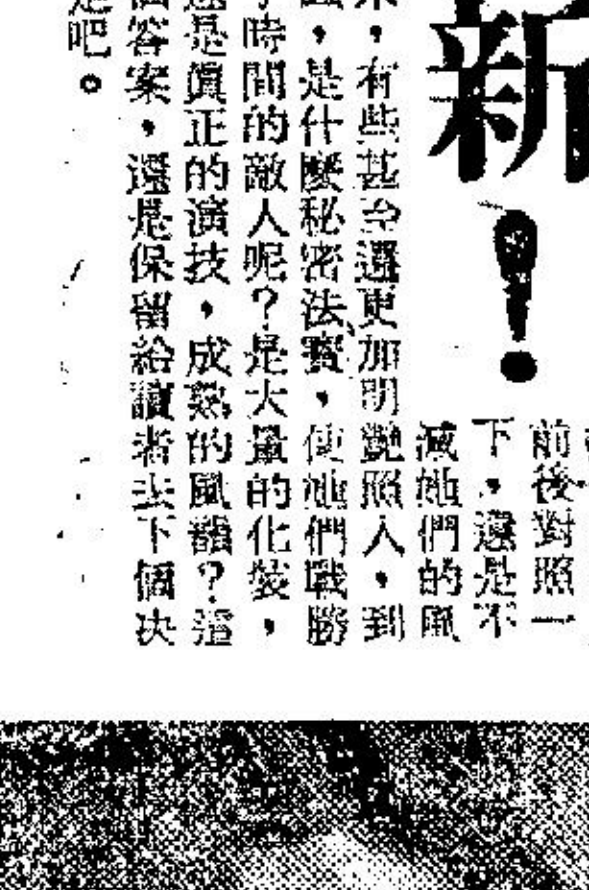 新！
前後對照一
下，還是不
減她們的風
，有些甚至還更加明艷照人，到
，是什麼秘密法寶，使她們戰勝
時間的敵人呢？是大量的化裝，
還是眞正的演技，成熟的風韻？這
個答案，還是保留給讀者去下個决
吧。